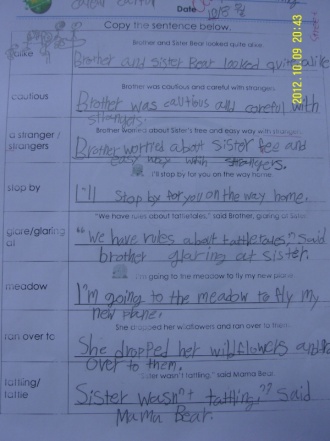 Date 10/8
Copy the sentence below.
2012.10.09 20:43
Brother and Sister Bear looked quite alike
alike
Brother and sister Bear looked quite alike
Brother was cautious and careful with strangers
cautious
Brother was cautious and careful with
strangers
Brother worried about Sister's free and easy way with strangers
a stranger /
strangers
Brother worried about sister fee and
easy way with strangers.
I'll stop by for you on the way home
stop by
I'll stop by for you on the way home.
"We have rules about tattletales," said Brother, glaring at Sister
glare/glaring
at
"We have rules about tattletales," said
brother glaring at sister.
I'm going to the meadow to fly my new plane.
meadow
I'm going to the meadow to fly my
new plane.
She dropped her wildflowers and ran over to them.
ran over to
She dropped her wildflowers and
over to them.
Sister wasn't tattling," said Mama Bear.
tattling/
tattle
Sister wasn't tattling," said
Mama Bear.